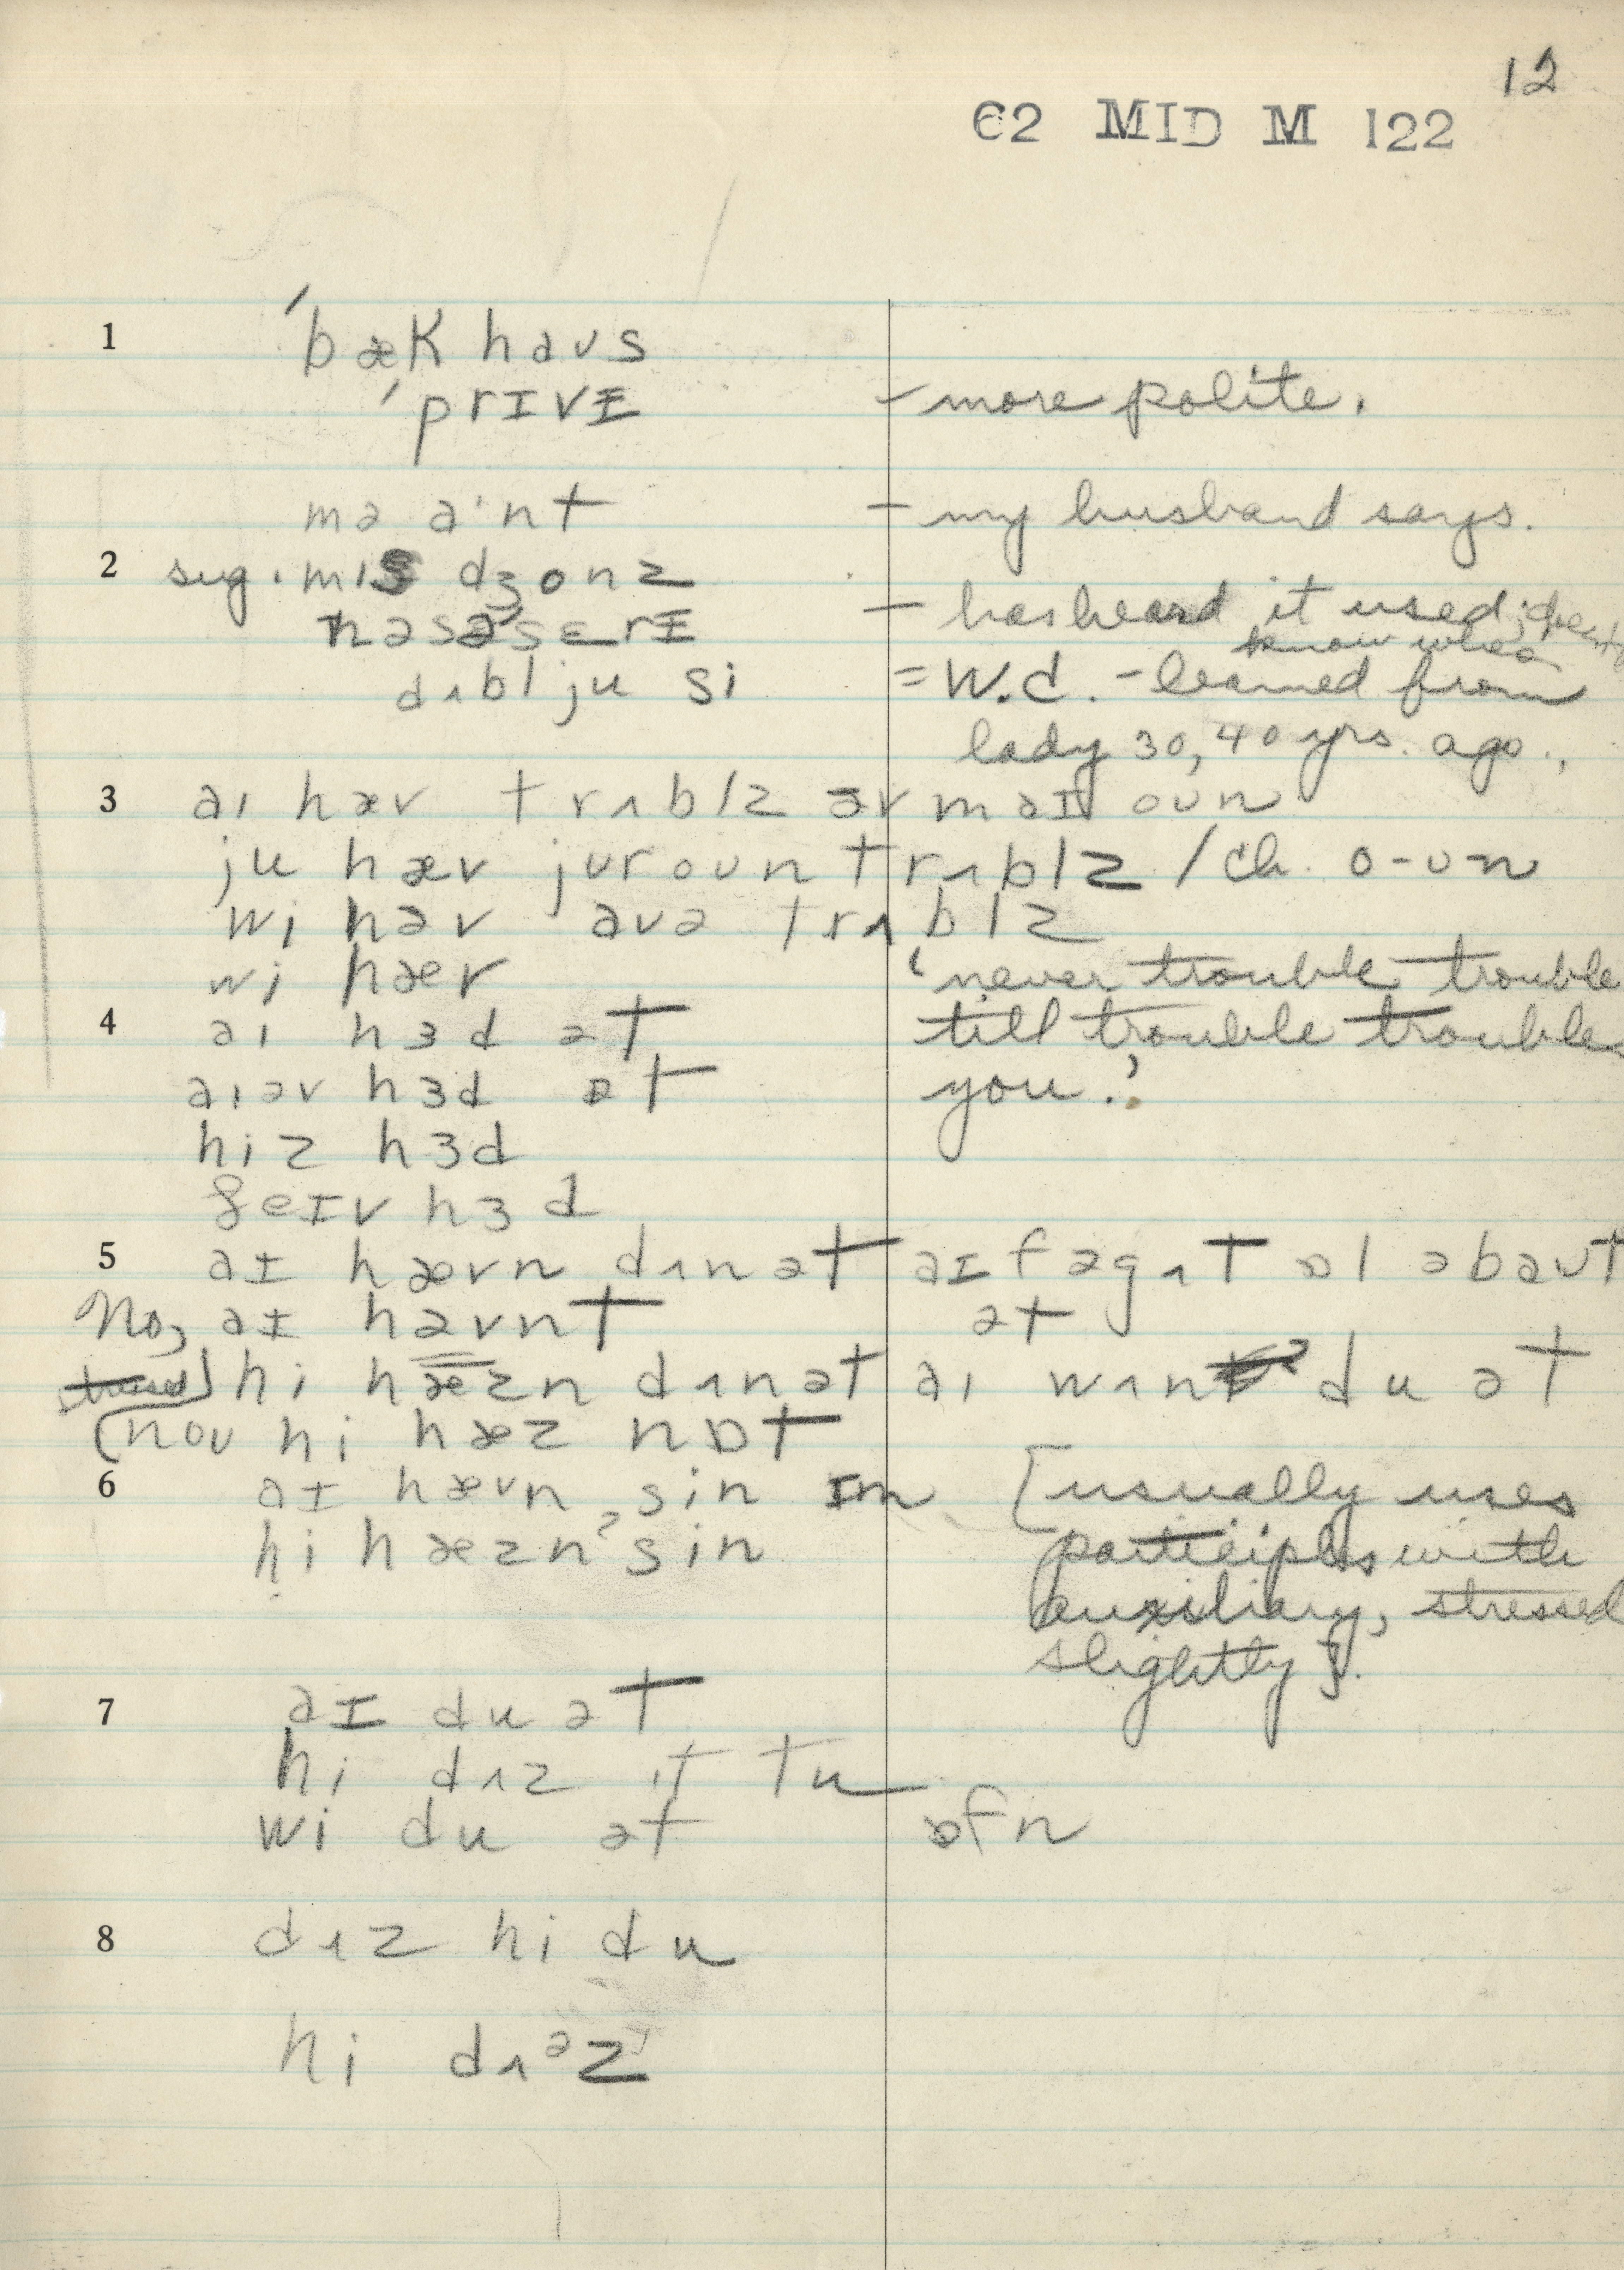 12
62 MID M 122
1 ˈbæk haus
ˈprɪvɪ - more polite.
mə aˈnt - my husband says.
2 sug. mɪs dʒonz
nəsəˈserɪ - has heard it used; doesn't know when
dʌbl ju si = W.C. - learned from
lady 30, 40 yrs. ago.,
3 aɪ hæv trʌblz əv maɪ oun
ju hæv jur oun trʌblz / ch. o-un
wi həv auə trʌblz
wi hæv 'never trouble trouble
4 aɪ hɜd ət till trouble troubles
aɪ əv hɜd ət you.'
hiz hɜd
ðeɪv hɜd
5 aɪ hævn dʌn ət aɪ fəgɒt ɒl əbaut
No, aɪ hævnt ət
hi hæzn dʌn ət aɪ wʌn du ət
(nou hi hæz nɒt
6 aɪ hævn sin ɪm [usually uses
hi hæzn sin participles with
auxiliary, stressed
slightly].
7 aɪ du ət
hi dʌz it tu
wi du ət ɒfn
8 dʌz hi du
hi dʌᵊz